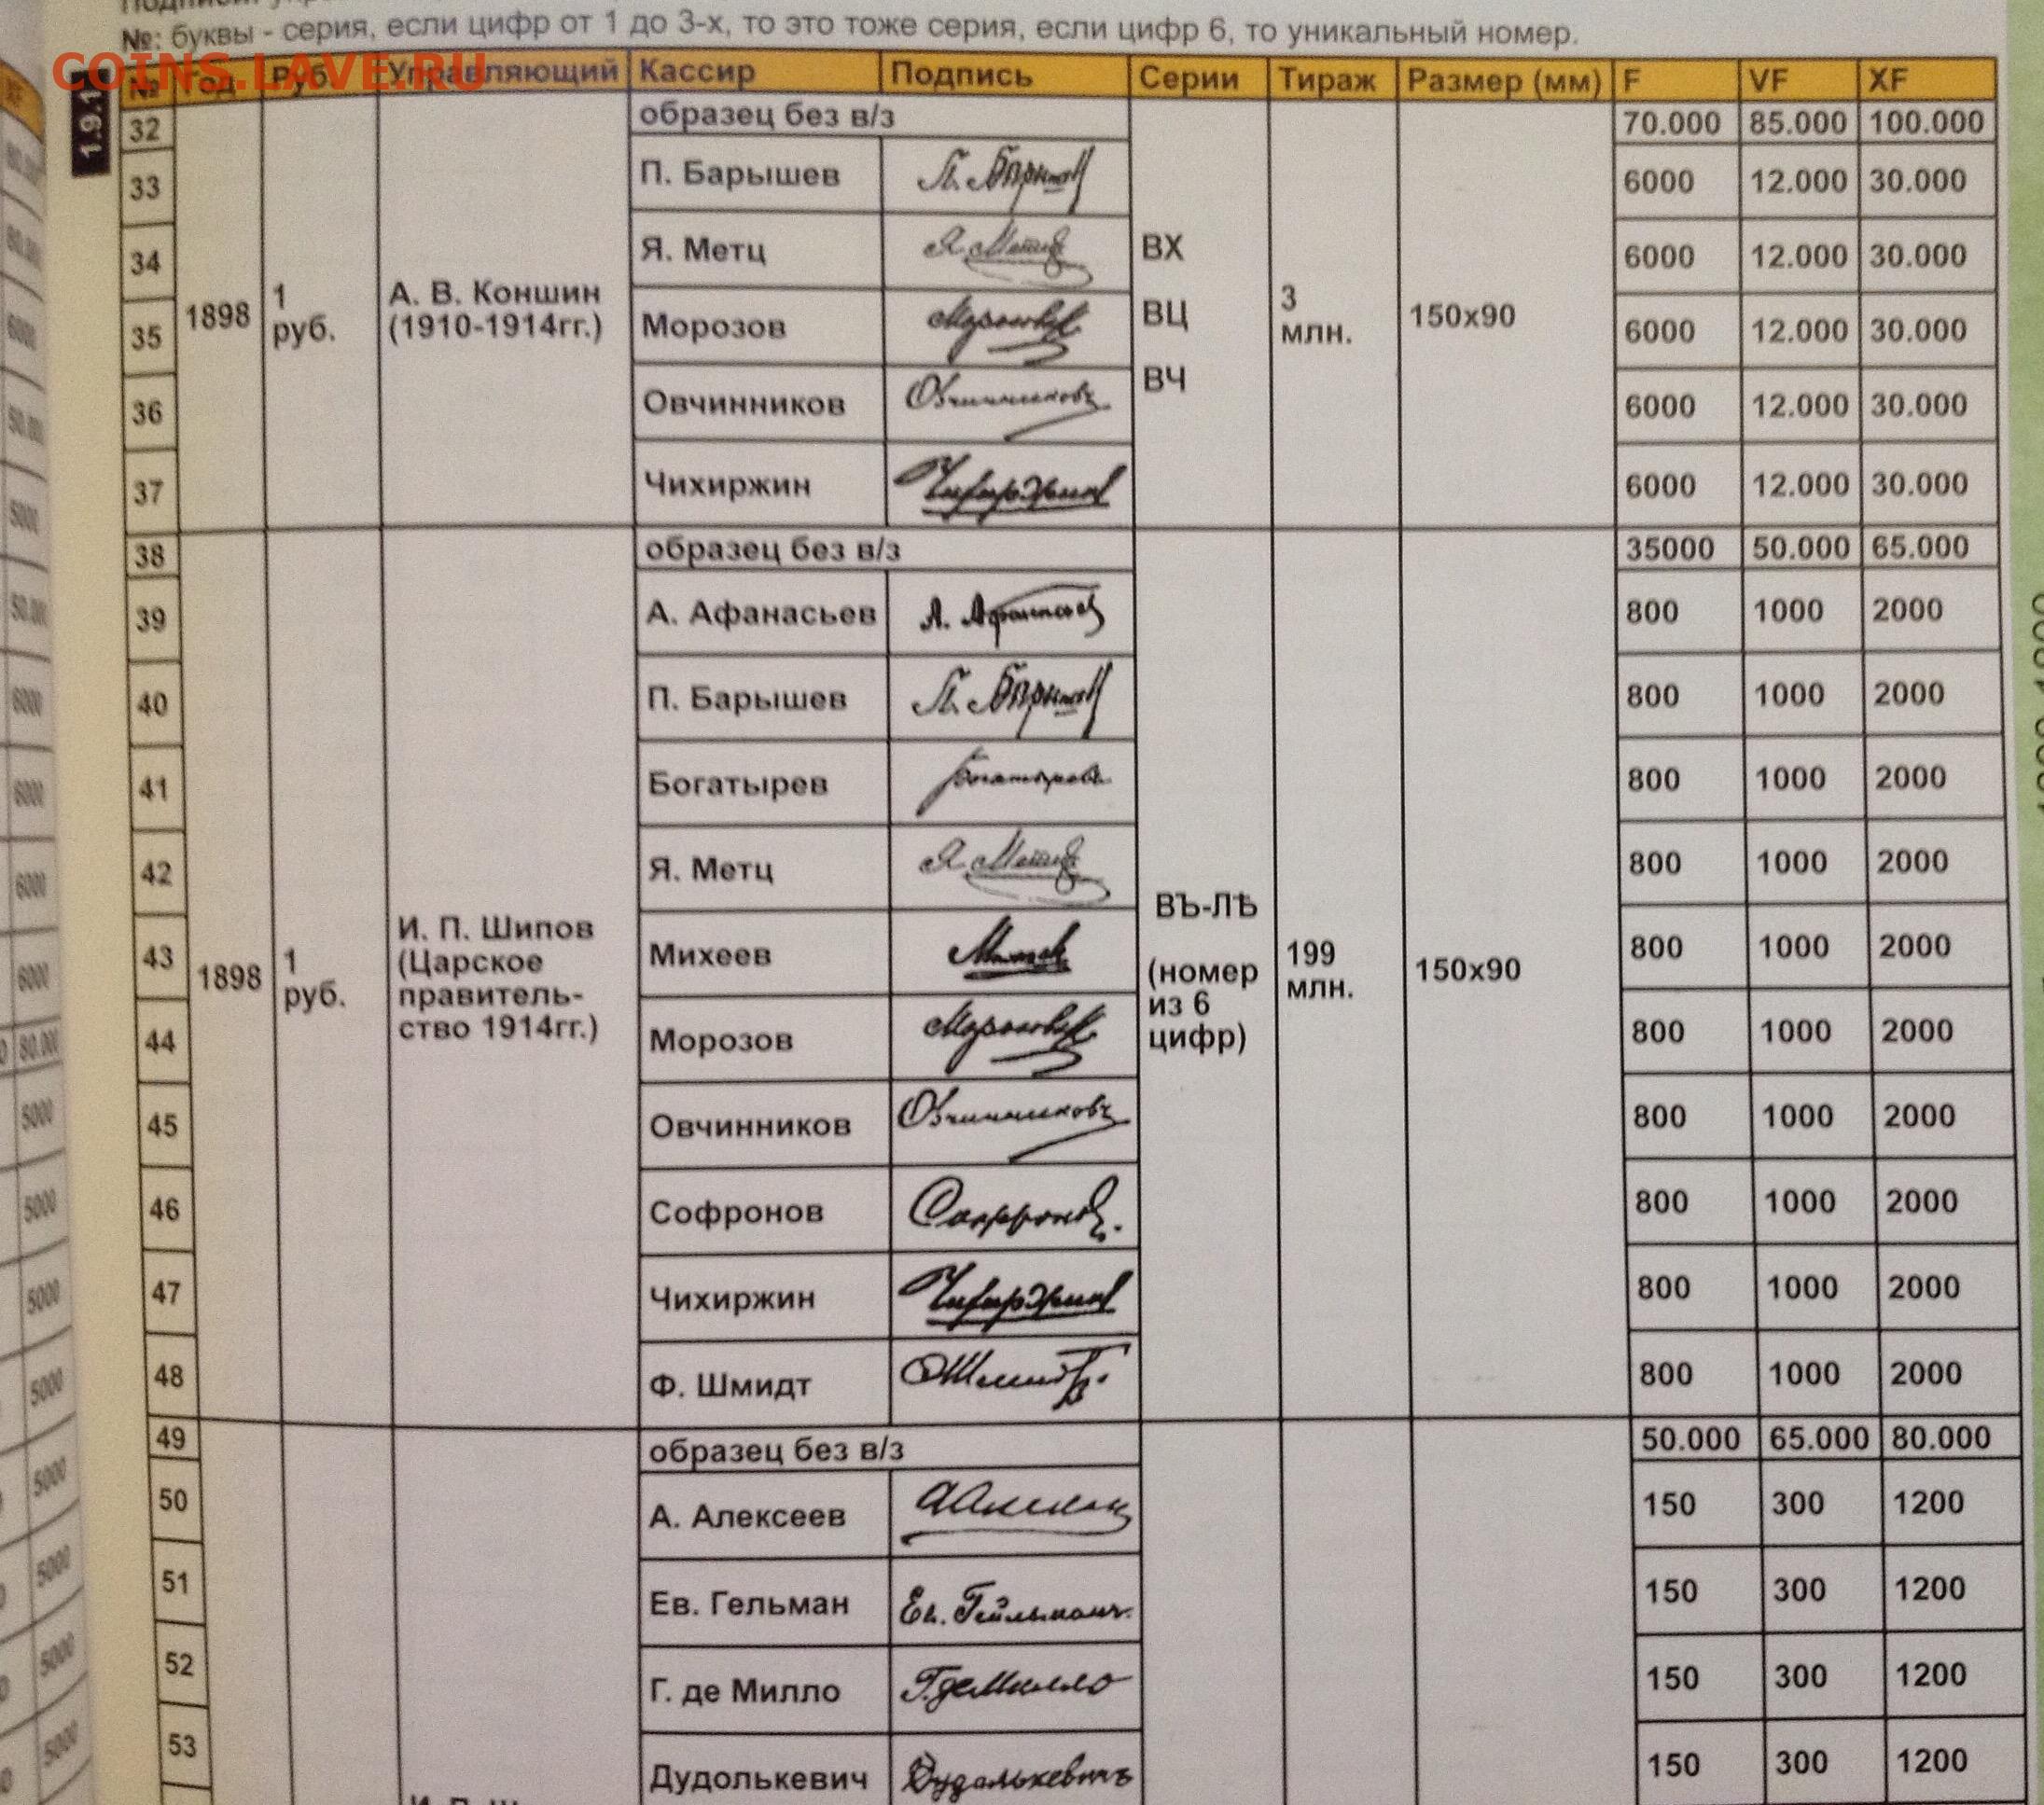 №: буквы - серия, если цифр от 1 до 3-х, то это тоже серия, если цифр 6, то уникальный номер.
COINS.LAVE.RU
1.9.1
№ Год Руб. Управляющий Кассир Подпись Серии Тираж Размер (мм) F VF XF
32 образец без в/з 70.000 85.000 100.000
33 П. Барышев 6000 12.000 30.000
34 Я. Метц ВХ 6000 12.000 30.000
1898 1 руб. А. В. Коншин (1910-1914гг.) 3 млн. 150x90
35 Морозов ВЦ 6000 12.000 30.000
36 Овчинников ВЧ 6000 12.000 30.000
37 Чихиржин 6000 12.000 30.000
38 образец без в/з 35000 50.000 65.000
39 А. Афанасьев 800 1000 2000
40 П. Барышев 800 1000 2000
41 Богатырев 800 1000 2000
42 Я. Метц 800 1000 2000
1898 1 руб. И. П. Шипов (Царское правитель- ство 1914гг.) ВЪ-ЛѢ (номер из 6 цифр) 199 млн. 150x90
43 Михеев 800 1000 2000
44 Морозов 800 1000 2000
45 Овчинников 800 1000 2000
46 Софронов 800 1000 2000
47 Чихиржин 800 1000 2000
48 Ф. Шмидт 800 1000 2000
49 образец без в/з 50.000 65.000 80.000
50 А. Алексеев 150 300 1200
51 Ев. Гельман 150 300 1200
52 Г. де Милло 150 300 1200
53 Дудолькевич 150 300 1200